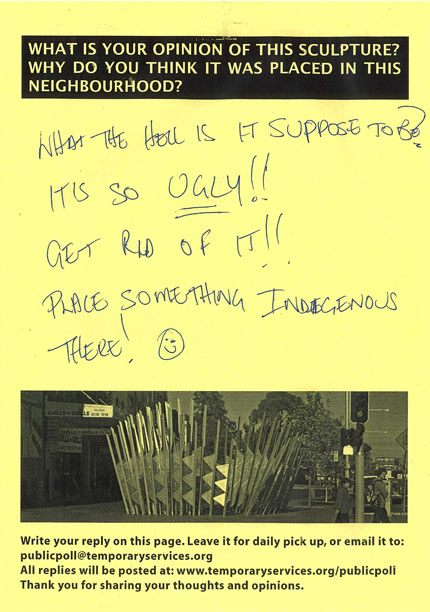 WHAT IS YOUR OPINION OF THIS SCULPTURE?
WHY DO YOU THINK IT WAS PLACED IN THIS
NEIGHBOURHOOD?
WHAT THE HELL IS IT SUPPOSE TO BE?
IT IS SO UGLY!!
GET RID OF IT!!
PLACE SOMETHING INDEGENOUS
THERE!
Write your reply on this page. Leave it for daily pick up, or email it to:
publicpoll@temporaryservices.org
All replies will be posted at: www.temporaryservices.org/publicpoll
Thank you for sharing your thoughts and opinions.